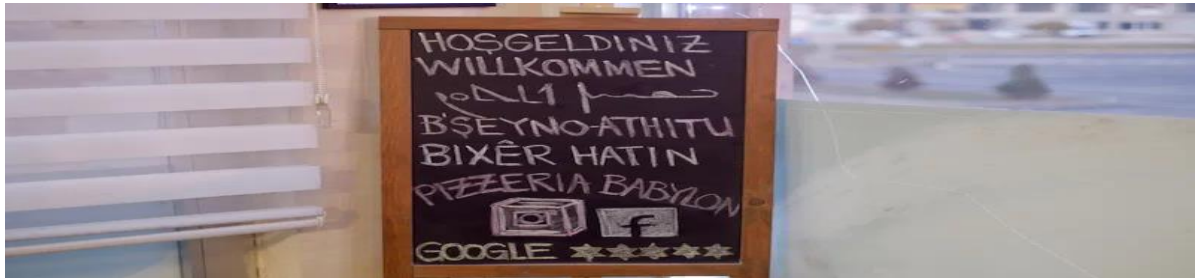 HOŞGELDINIZ
WILLKOMMEN
B'ŞEYNO-ATHITU
BIXÊR HATIN
PIZZERIA BABYLON
f
GOOGLE ★★★★★